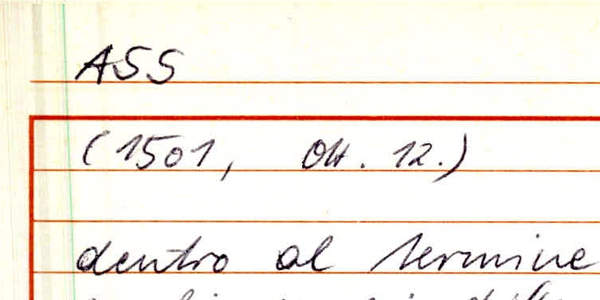 ASS
(1501, Okt. 12.)
dentro al termine